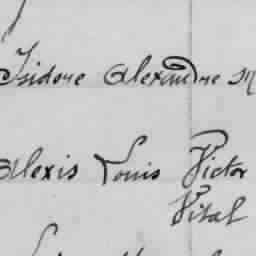 Isidore Alexandre
Alexis Louis Victor
Vital